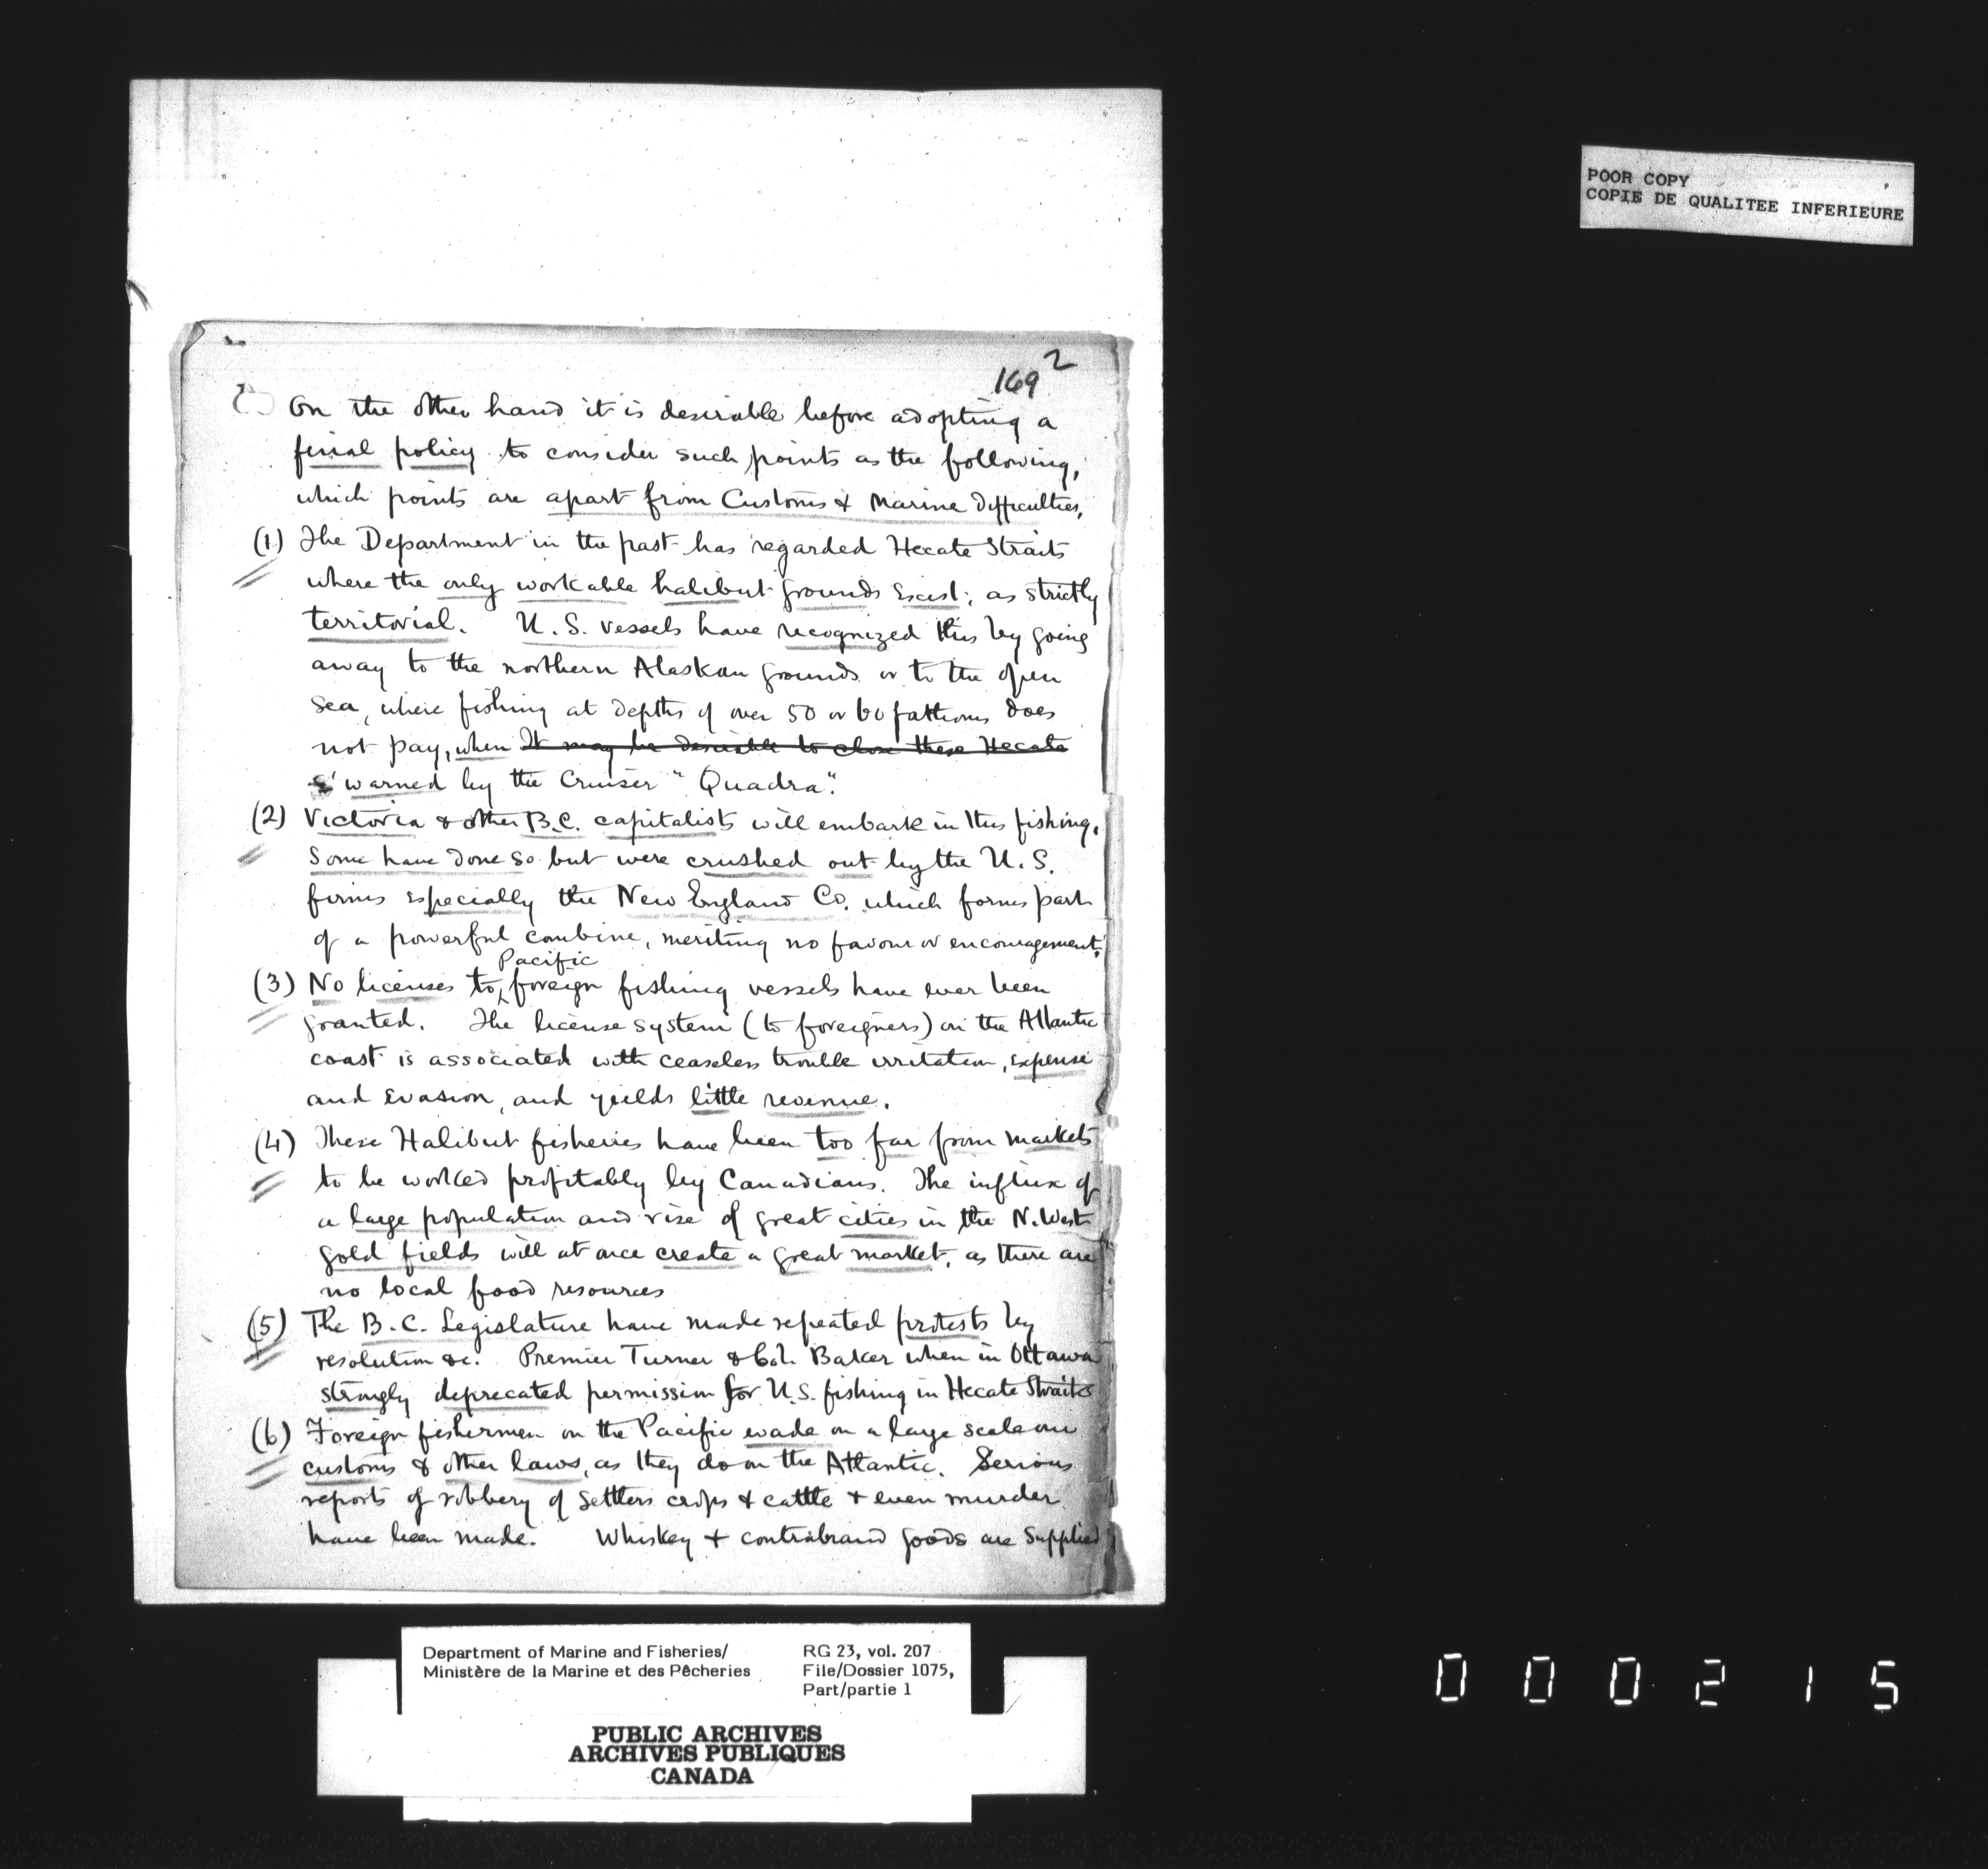 POOR COPY
COPIE DE QUALITEE INFERIEURE
169 2
On the other hand it is desirable before adopting a
final policy to consider such points as the following,
which points are apart from Customs & Marine difficulties,
(1) The Department in the past has regarded Hecate Straits
where the only workable halibut grounds exist, as strictly
territorial. U.S. vessels have recognized this by going
away to the northern Alaskan grounds or to the open
sea, where fishing at depths of over 50 or 60 fathoms does
not pay, when It may be desirable to close these Hecate
S warned by the Cruiser "Quadra".
(2) Victoria & other B.C. capitalists will embark in this fishing,
Some have done so but were crushed out by the U.S.
firms especially the New England Co. which forms part
of a powerful combine, meriting no favour or encouragement.
Pacific
(3) No licenses to foreign fishing vessels have ever been
granted. The license system (to foreigners) on the Atlantic
coast is associated with ceaseless trouble irritation, expense
and evasion, and yields little revenue.
(4) These Halibut fisheries have been too far from markets
to be worked profitably by Canadians. The influx of
a large population and rise of great cities in the N. West
gold fields will at once create a great market, as there are
no local food resources
(5) The B.C. Legislature have made repeated protests by
resolution &c. Premier Turner & Col. Baker when in Ottawa
strongly deprecated permission for U.S. fishing in Hecate Straits
(6) Foreign fishermen on the Pacific evade on a large scale our
customs & other laws, as they do on the Atlantic. Serious
reports of robbery of settlers crops & cattle & even murder
have been made. Whiskey + contraband goods are supplied
Department of Marine and Fisheries/
Ministère de la Marine et des Pêcheries
RG 23, vol. 207
File/Dossier 1075,
Part/partie 1
PUBLIC ARCHIVES
ARCHIVES PUBLIQUES
CANADA
000215